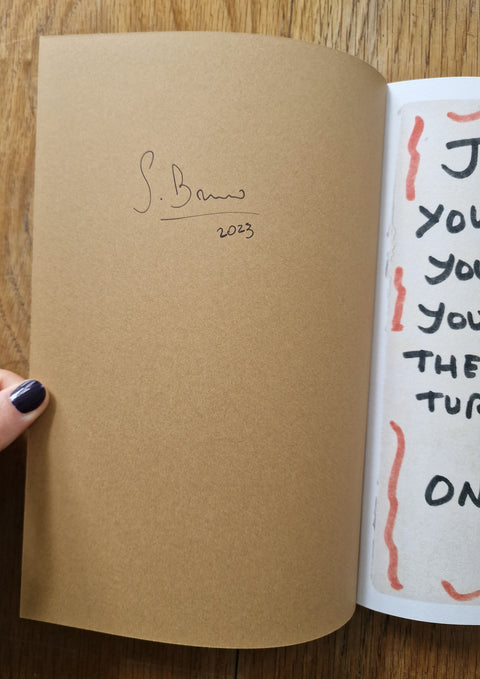 S. Bruno
2023
J
YOU
YOU
YOU
THE
TUR
ON